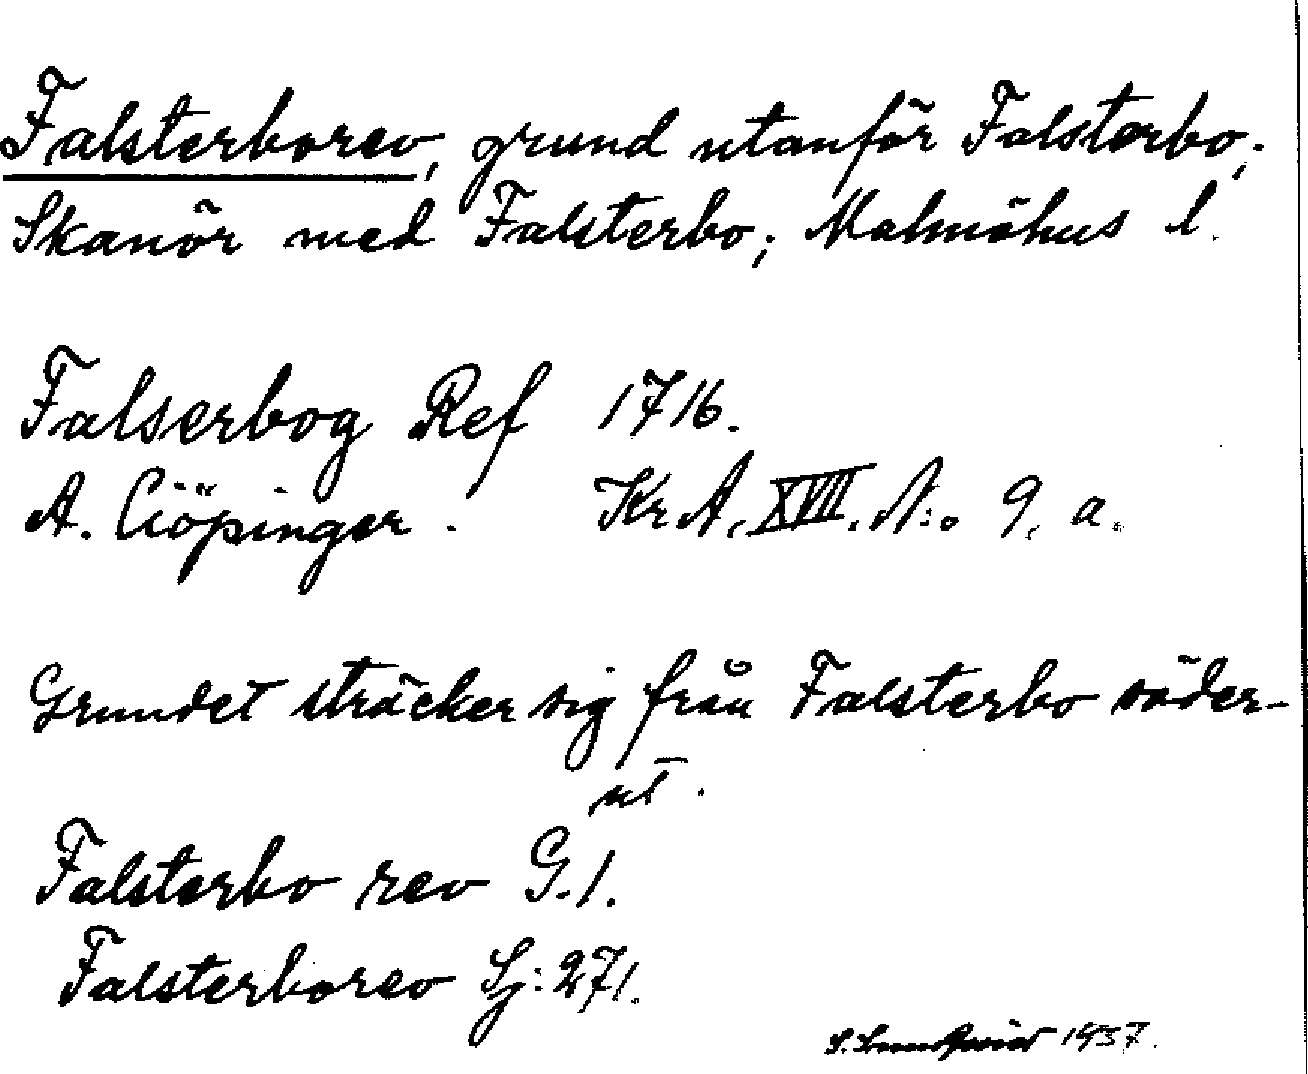 Falsterborev, grund utanför Falsterbo;
Skanör med Falsterbo; Malmöhus l.
Falserbog Ref 1716.
A. Ciöpinger. Kr. A. XVII. N:o 9. a.
Grundet sträcker sig från Falsterbo söder-
ut.
Falsterbo rev G. 1.
Falsterborev Sj: 271.
S. 1937.